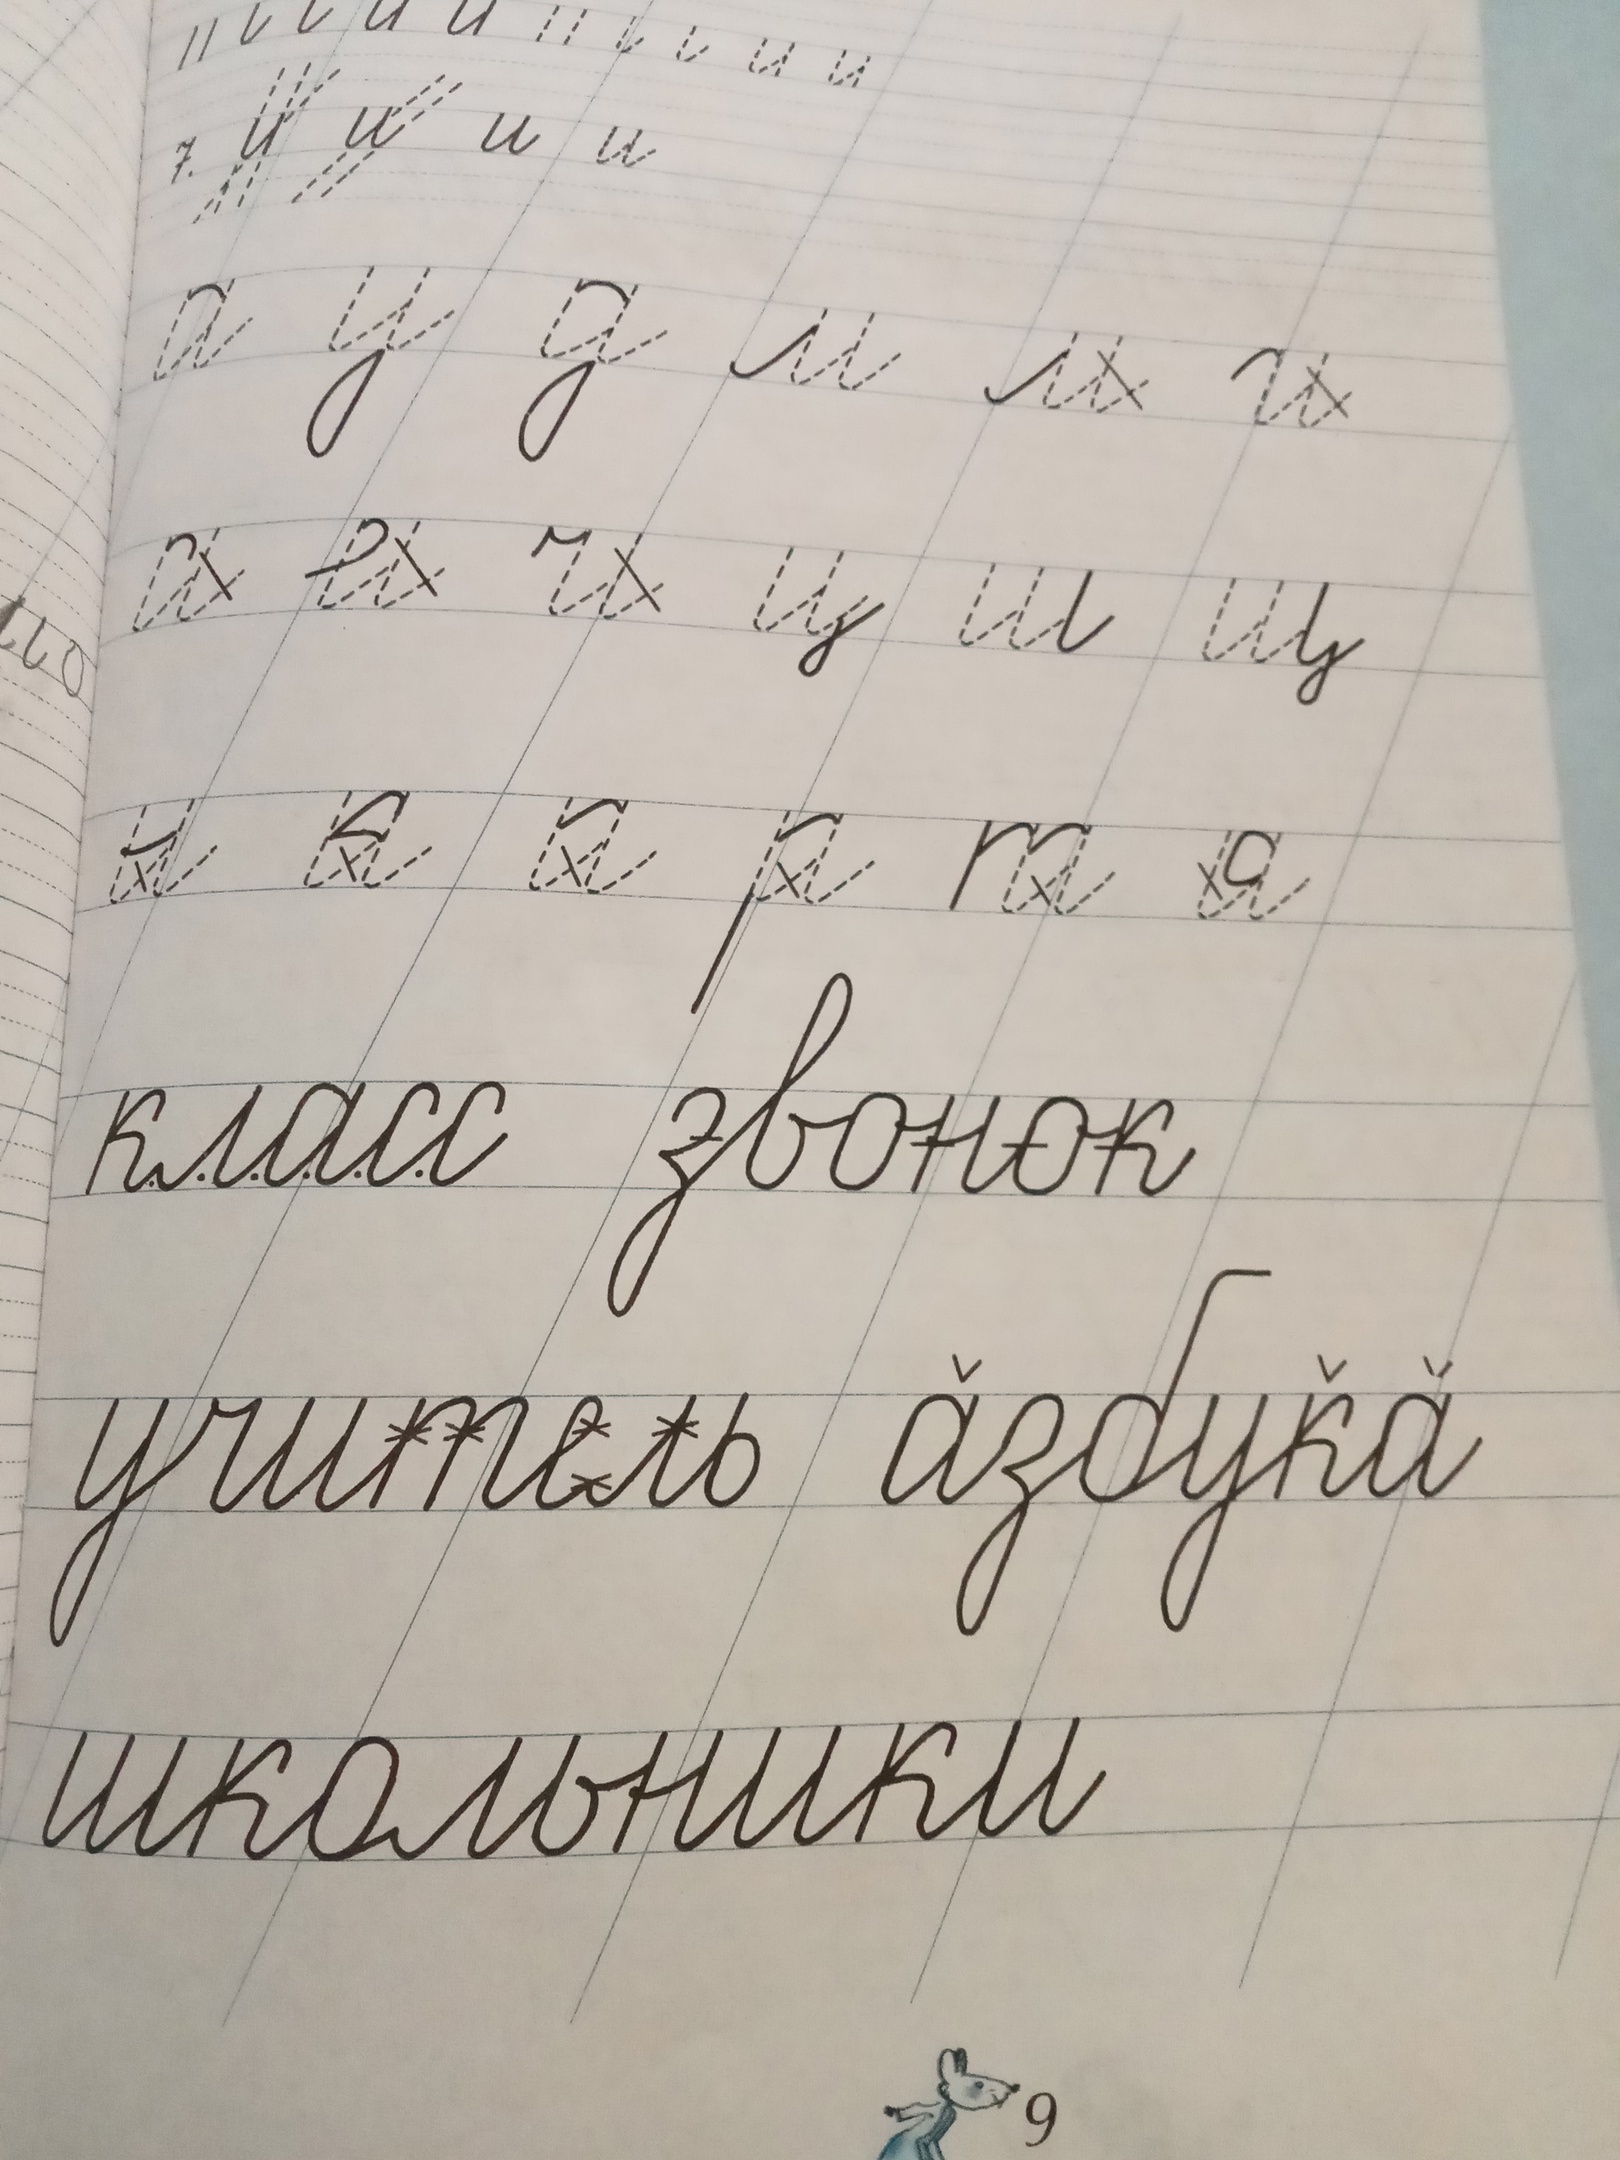 7. и и и и
а у д м л г
с е ч ц ш щ
н к п р т я
класс звонок
учитель азбука
школьники
9